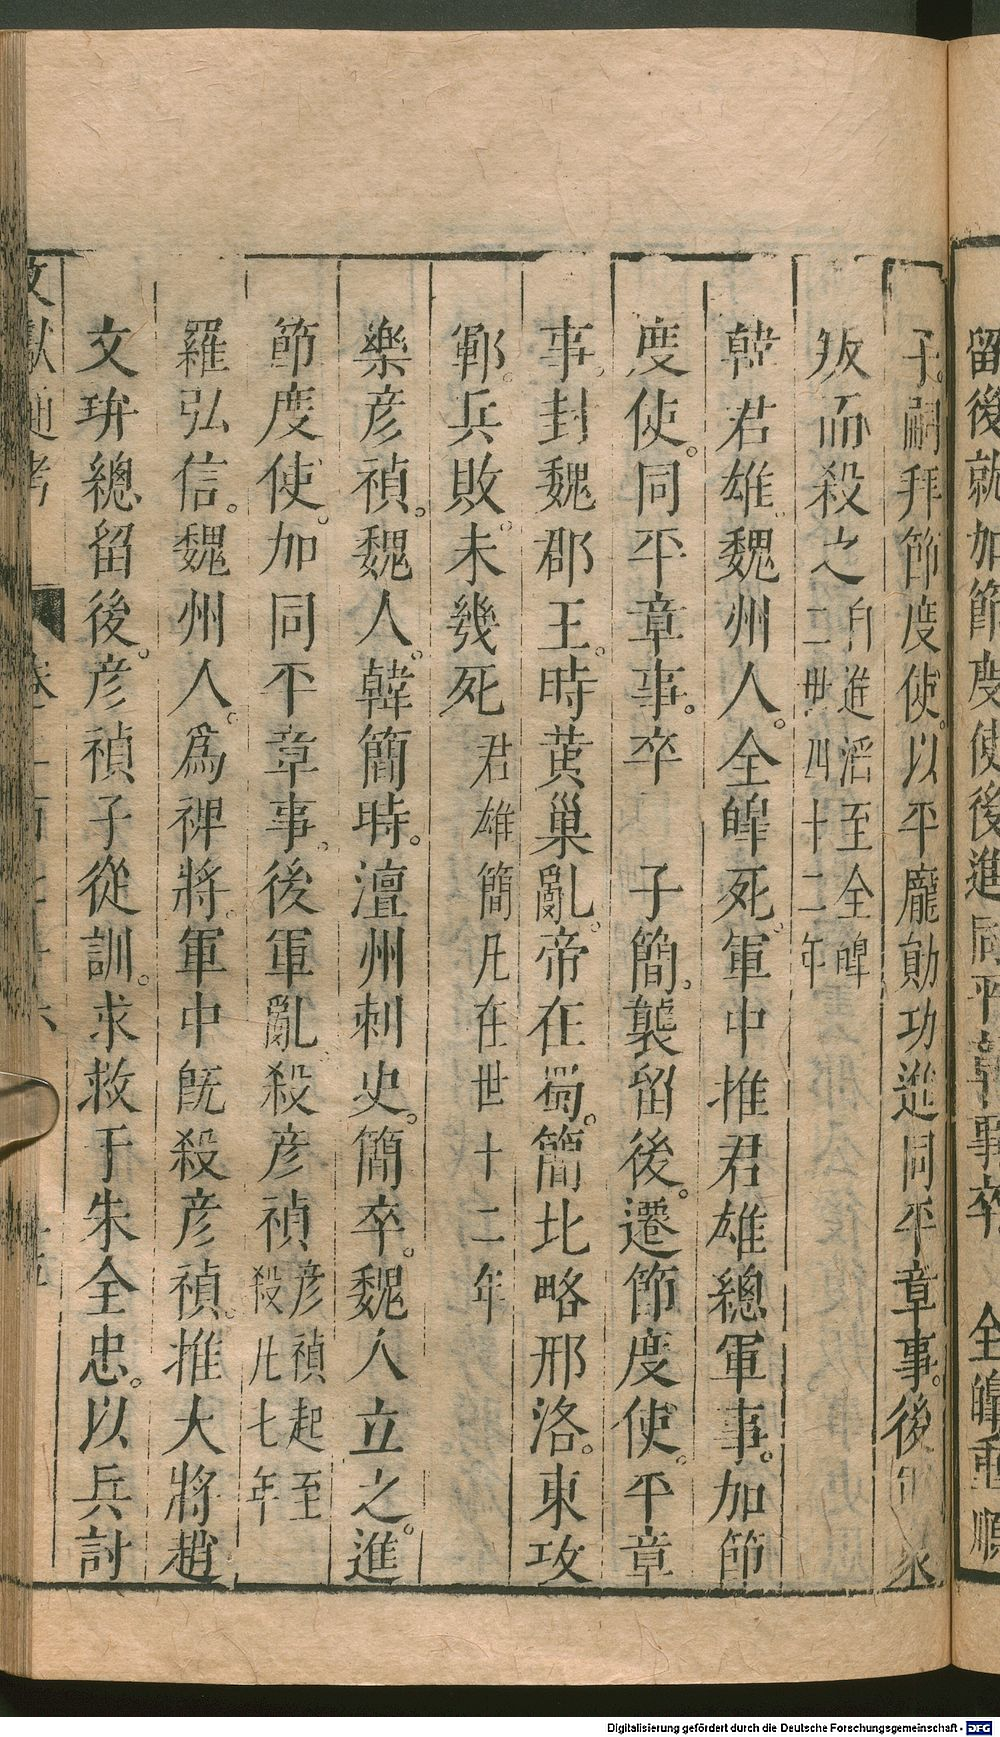 留後就加節度使後進同平章事卒　全皥
子嗣拜節度使以平龐勛功進同平章事後
叛而殺之自進滔至全皥二世四十二年
韓君雄魏州人全皥死軍中推君雄總軍事加節
度使同平章事卒　子簡襲留後遷節度使平章
事封魏郡王時黃巢亂帝在蜀簡北略邢洛東攻
鄆兵敗未幾死君雄簡凡在世十二年
樂彥禎魏人韓簡時澶州刺史簡卒魏人立之進
節度使加同平章事後軍亂殺彥禎彥禎起至殺凡七年
羅弘信魏州人爲裨將軍中旣殺彥禎推大將趙
文㺹總留後彥禎子從訓求救于朱全忠以兵討
文獻通考　卷二百七十六
Digitalisierung gefördert durch die Deutsche Forschungsgemeinschaft - DFG